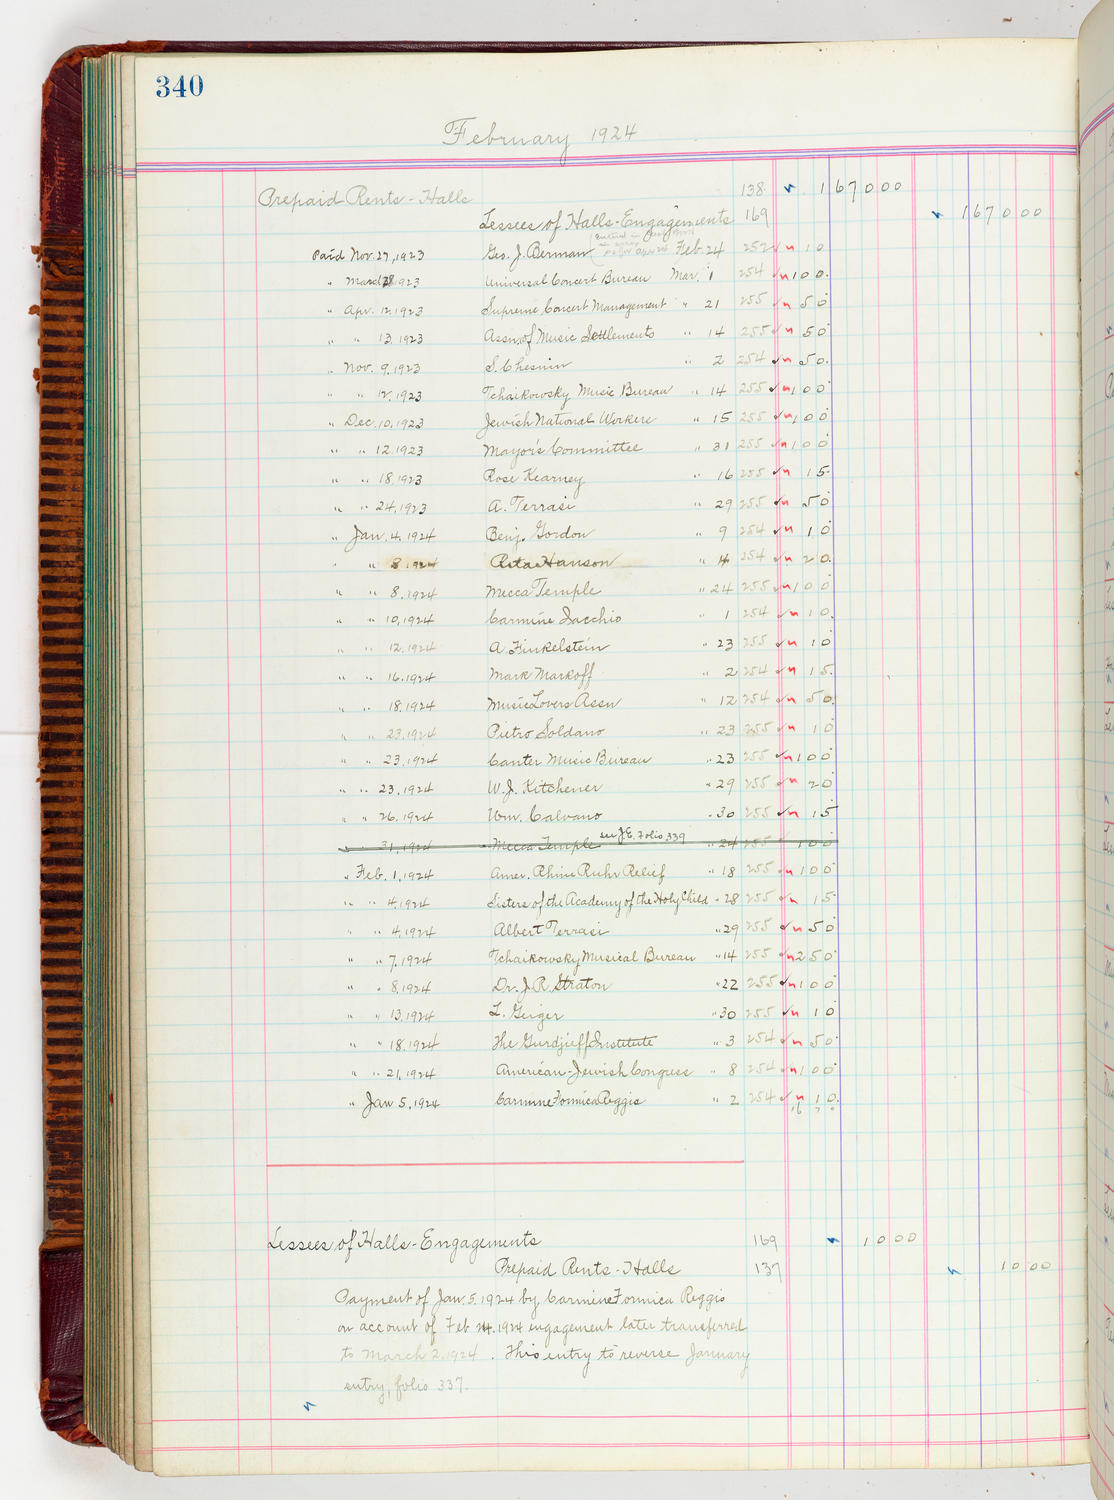 340
February 1924
Prepaid Rents - Halls 138 1 670 00
Lessees of Halls - Engagements 169 1 670 00
Paid Nov. 27, 1923 Geo. J. Berman Feb. 24 252 10
" March 28, 1923 Universal Concert Bureau Mar. 1 254 100.
" Apr. 12, 1923 Supreme Concert Management " 21 255 50
" " 13, 1923 Assn. of Music Settlements " 14 255 50
" Nov. 9, 1923 S. Chesnin " 2 254 50.
" " 12, 1923 Tchaikowsky Music Bureau " 14 255 100
" Dec. 10, 1923 Jewish National Workers " 15 255 100
" " 12, 1923 Mayor's Committee " 31 255 100
" " 18, 1923 Rose Kearney " 16 255 15.
" " 24, 1923 A. Terrasi " 29 255 50
" Jan. 4, 1924 Benj. Gordon " 9 254 10
" " 8, 1924 Rita Hanson " 4 254 20.
" " 8, 1924 Mecca Temple " 24 255 100
" " 10, 1924 Carmine Iacchio " 1 254 10.
" " 12, 1924 A. Finkelstein " 23 255 10
" " 16, 1924 Mark Markoff " 2 254 15.
" " 18, 1924 Music Lovers Assn " 12 254 50.
" " 23, 1924 Pietro Soldano " 23 255 10
" " 23, 1924 Canter Music Bureau " 23 255 100
" " 23, 1924 W. J. Kitchener " 29 255 20
" " 26, 1924 Wm. Calvano " 30 255 15
" " 31, 1924 Mecca Temple see J.E. Folio 339 " 24 255 100
" Feb. 1, 1924 Amer. Rhine Ruhr Relief " 18 255 100
" " 4, 1924 Sisters of the Academy of the Holy Child " 28 255 15.
" " 4, 1924 Albert Terrasi " 29 255 50
" " 7, 1924 Tchaikowsky Musical Bureau " 14 255 250
" " 8, 1924 Dr. J. R. Straton " 22 255 100
" " 13, 1924 L. Geiger " 30 255 10
" " 18, 1924 The Gurdjieff Institute " 3 254 50.
" " 21, 1924 American-Jewish Congress " 8 254 100
" Jan 5, 1924 Carmine Formica Reggio " 2 254 10.
16 7 0
Lessees of Halls - Engagements 169 10 00
Prepaid Rents - Halls 137 10 00
Payment of Jan. 5, 1924 by Carmine Formica Reggio
on account of Feb 24, 1924 engagement later transferred
to March 2, 1924. This entry to reverse January
entry, folio 337.